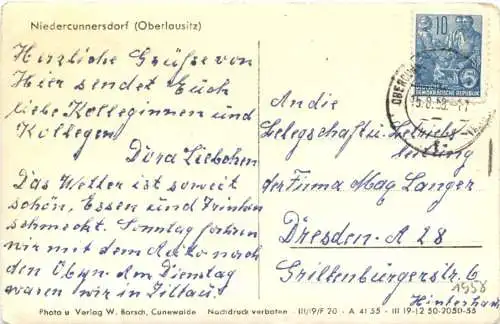 Niedercunnersdorf (Oberlausitz)
Herzliche Grüße von
Hier sendet Euch
liebe Kolleginnen und
Kollegen
Dora Liebchen
Das Wetter ist soweit
schön, Essen und Trinken
schmeckt. Sonntag fahren
wir mit dem Auto nach
den Obyn. Am Dienstag
waren wir in Zittau!
10
DEMOKRATISCHE REPUBLIK
15.8.58
An die
Belegschaft u. Betriebs
leitung
der Firma Mag Langer
Dresden-A 28
Grillenburgerstr. 6
1958
Hinterhaus
Photo u Verlag W. Barsch, Cunewalde Nachdruck verboten III/19/F 20 - A 41 55 - III 19-12 50-2050-55